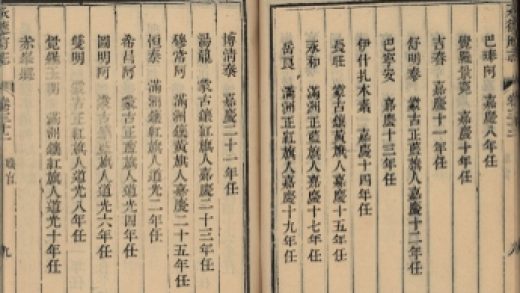 承德府志
巴琫阿 嘉慶八年任
覺羅景亮 嘉慶十年任
古春 嘉慶十一年任
舒明泰 蒙古正黃旗人嘉慶十二年任
巴寧安 嘉慶十三年任
伊什扎木素 嘉慶十四年任
長旺 蒙古鑲黃旗人嘉慶十五年任
永和 滿洲正藍旗人嘉慶十七年任
岳良 滿洲正紅旗人嘉慶十九年任
博清泰 嘉慶二十一年任
湯龍 蒙古鑲紅旗人嘉慶二十三年任
穆當阿 滿洲鑲黃旗人嘉慶二十五年任
恒泰 滿洲鑲紅旗人道光二年任
希昌阿 蒙古正藍旗人道光四年任
圖明阿 蒙古正紅旗人道光六年任
雙明 蒙古鑲紅旗人道光八年任
覺羅 滿洲鑲紅旗人道光十年任
承德府志 卷三十二 職官 九